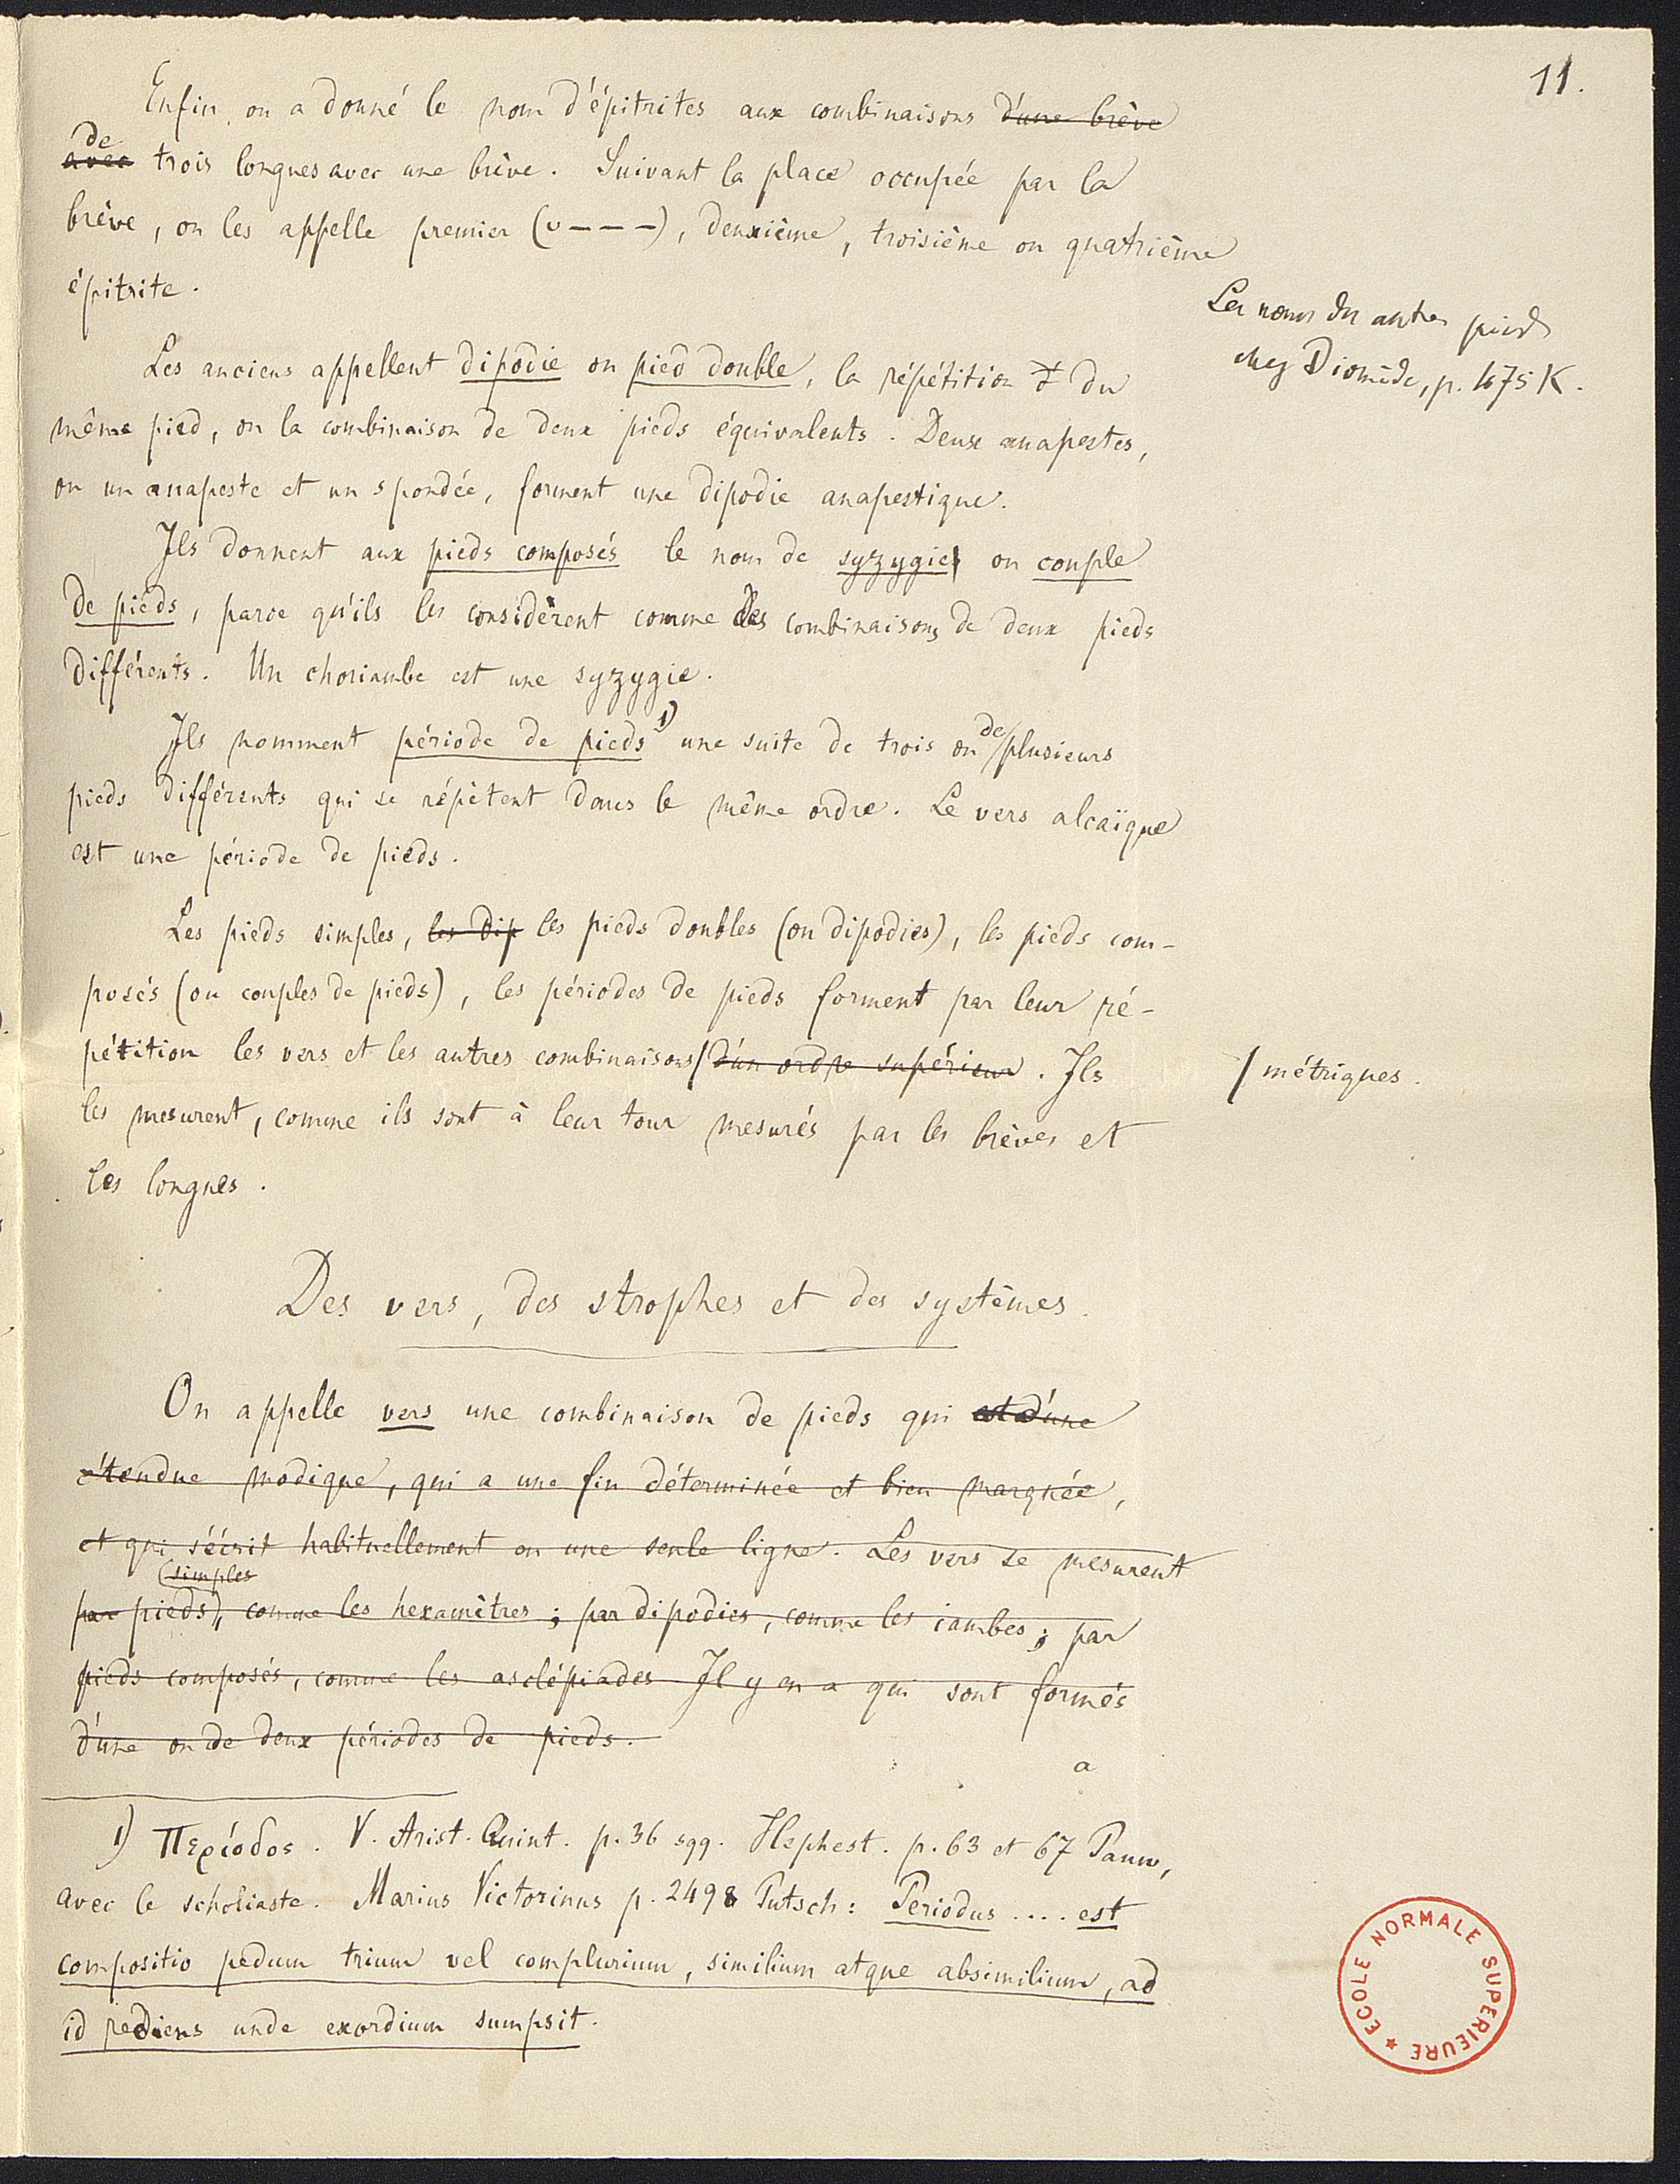 11.
Enfin, on a donné le nom d'épitrites aux combinaisons d'une brève
avec de trois longues avec une brève. Suivant la place occupée par la
brève, on les appelle premier (υ – – –), deuxième, troisième ou quatrième
épitrite.
Les noms des autres pieds
chez Diomède, p. 475 K.
Les anciens appellent dipodie ou pied double, la répétition d du
même pied, ou la combinaison de deux pieds équivalents. Deux anapestes,
ou un anapeste et un spondée, forment une dipodie anapestique.
Ils donnent aux pieds composés le nom de syzygie ou couple
de pieds, parce qu'ils les considèrent comme des combinaisons de deux pieds
différents. Un choriambe est une syzygie.
Ils nomment période de pieds 1) une suite de trois ou de plusieurs
pieds différents qui se répètent dans le même ordre. Le vers alcaïque
est une période de pieds.
Les pieds simples, les dip les pieds doubles (ou dipodies), les pieds com-
posés (ou couples de pieds), les périodes de pieds forment par leur ré-
pétition les vers et les autres combinaisons/ d'un ordre supérieur. Ils
/ métriques.
les mesurent, comme ils sont à leur tour mesurés par les brèves et
les longues.
Des vers, des strophes et des systèmes.
On appelle vers une combinaison de pieds qui est d'une
étendue modique, qui a une fin déterminée et bien marquée,
et qui s'écrit habituellement en une seule ligne. Les vers se mesurent
(simples
par pieds), comme les hexamètres ; par dipodies, comme les iambes ; par
pieds composés, comme les asclépiades Il y en a qui sont formés
d'une ou de deux périodes de pieds.
a
1) Περίοδος. V. Arist. Quint. p. 36 sqq. Hephest. p. 63 et 67 Pauw,
avec le scholiaste. Marius Victorinus p. 2498 Putsch : Periodus .... est
compositio pedum trium vel complurium, similium atque absimilium, ad
id rediens unde exordium sumpsit.
ECOLE NORMALE SUPERIEURE